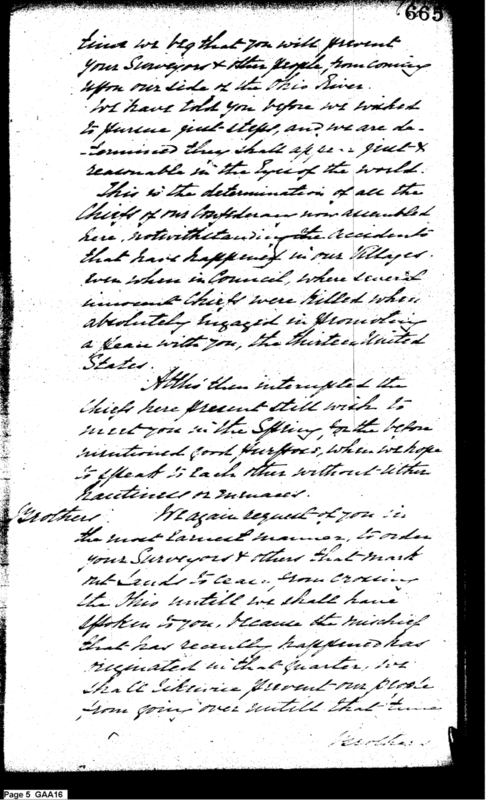 665
time we beg that you will prevent
your Surveyors & other people from coming
upon our side of the Ohio River.
We have told you before we wished
to pursue just steps, and we are de-
-termined they shall appear just &
reasonable in the Eyes of the world.
This is the determination of all the
Chiefs of our Confederacy now assembled
here, notwithstanding the Accidents
that have happened in our Villages.
Even when in Council, where several
innocent Chiefs were Killed when
absolutely Engaged in promoting
a peace with you, the thirteen United
States.
Altho' then interrupted the
Chiefs here present still wish to
meet you in the Spring, for the before
mentioned good purpose, when we hope
to speak to Each other without Either
hautiness or menaces.
Brothers We again request of you in
the most Earnest manner, to order
your Surveyors & others that mark
out Lands to cease from crossing
the Ohio untill we shall have
spoken to you, because the mischief
that has recently happened has
originated in that quarter, we
shall likewise prevent our people
from going over untill that time
Brothers
Page 5 GAA16